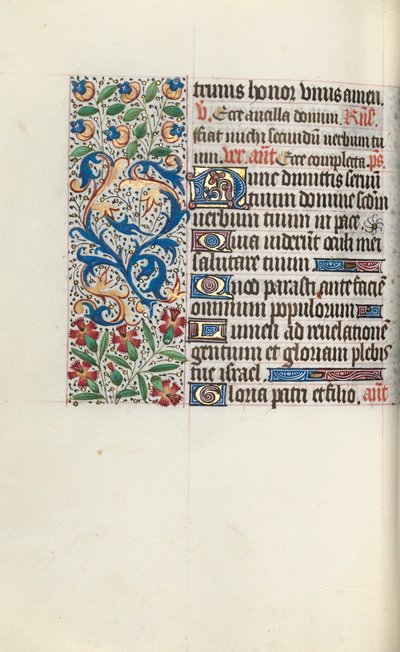 trinus honor unus amen.
V. Ecce ancilla domini Res
fiat michi secundū verbum tu
um. ver. ant Ecce completa. ps
Nunc dimittis servū
tuum domine scdm
verbum tuum in pace.
Quia viderūt oculi mei
salutare tuum
Quod parasti ante faciē
omnium populorum
Lumen ad revelationē
gentium et gloriam plebis
tue israel.
Gloria patri et filio. ant